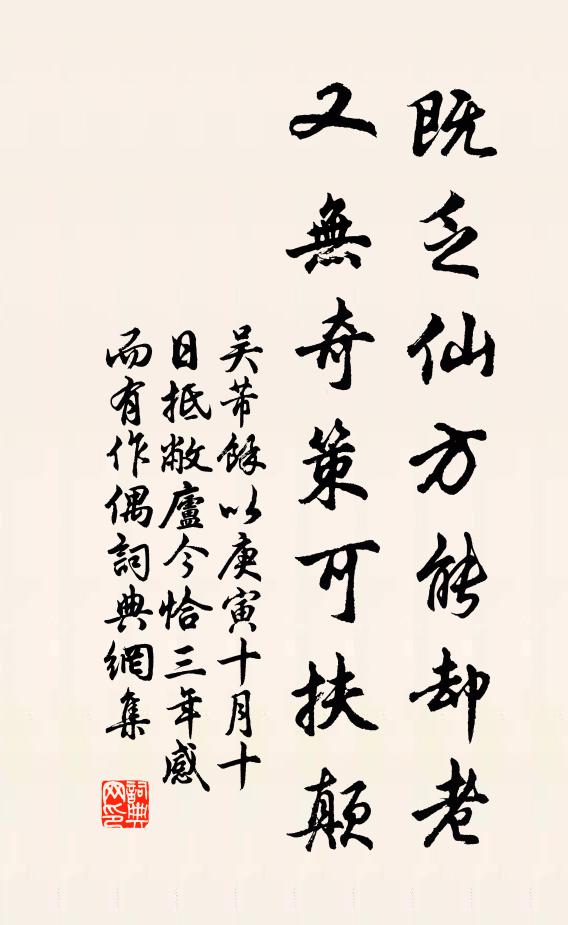 既乏仙方能却老
又無奇策可扶顛
吴芾餘以庚寅十月十
日抵敝廬今恰三年感
而有作偶詞典網集
詞典網印